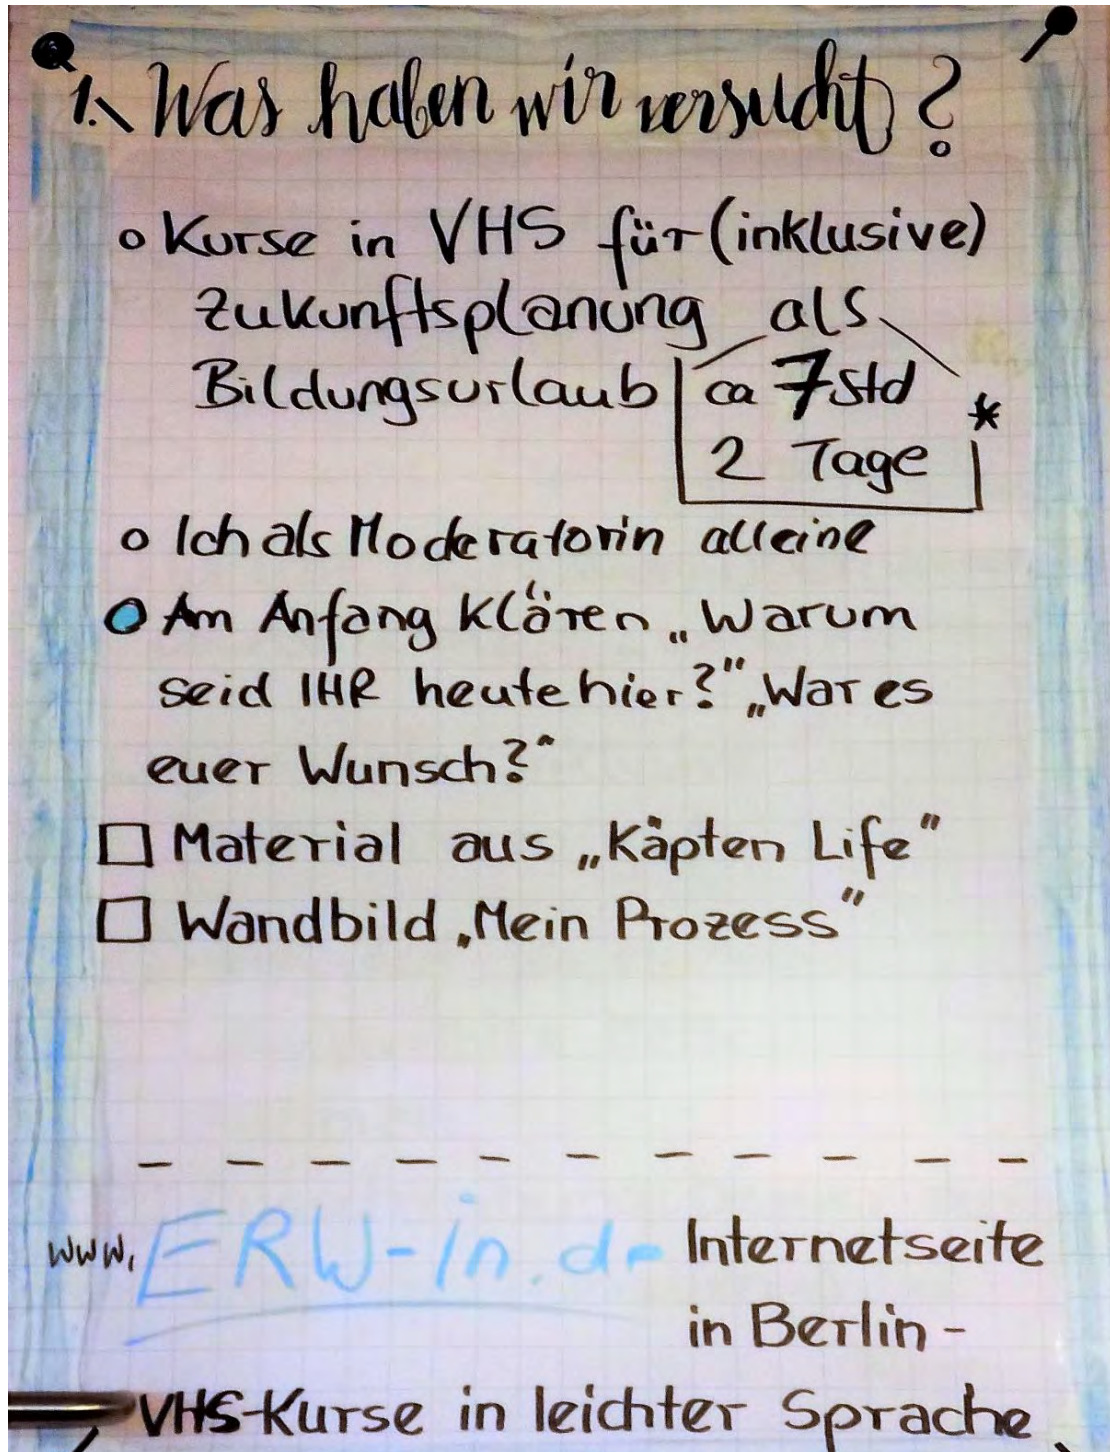 1. Was haben wir versucht?
o Kurse in VHS für (inklusive)
Zukunftsplanung als
Bildungsurlaub ca 7 Std *
2 Tage
o Ich als Moderatorin alleine
o Am Anfang Klären „Warum
seid IHR heute hier?" „War es
euer Wunsch?"
☐ Material aus „Käpten Life"
☐ Wandbild „Mein Prozess"
www. ERW-in.de Internetseite
in Berlin -
VHS-Kurse in leichter Sprache